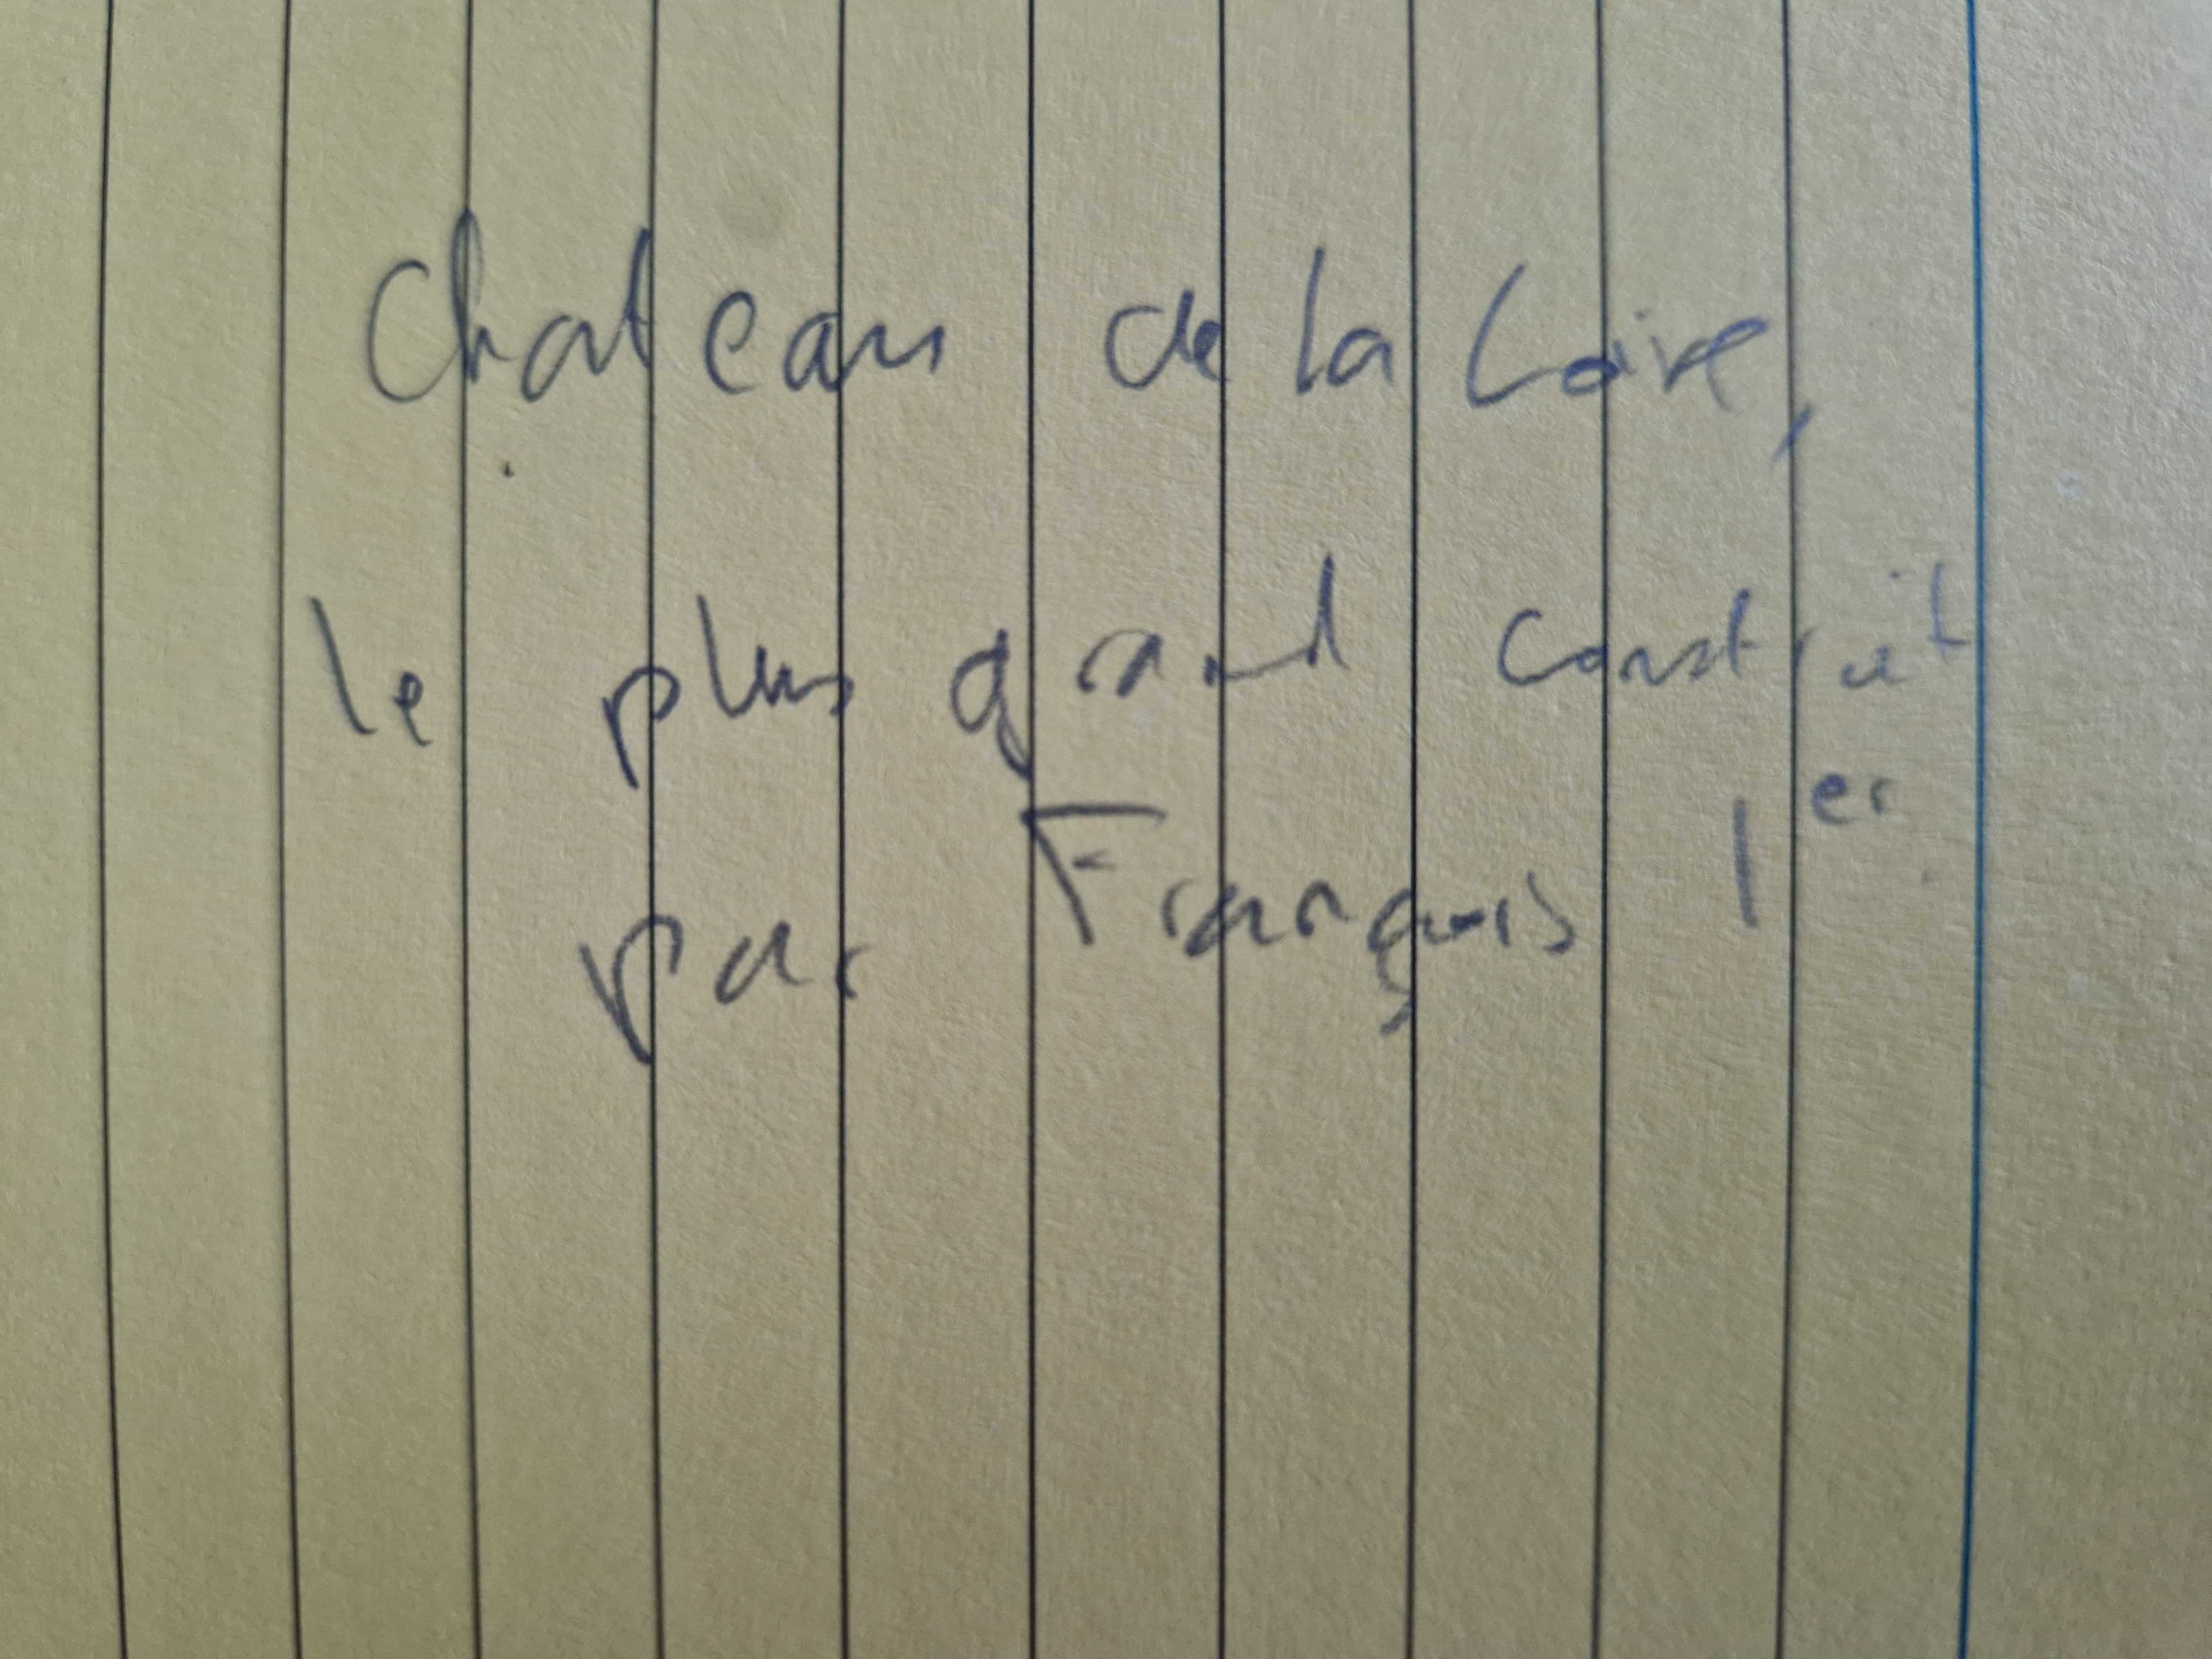 Chateau de la Loire,
le plus grand construit
par François 1er